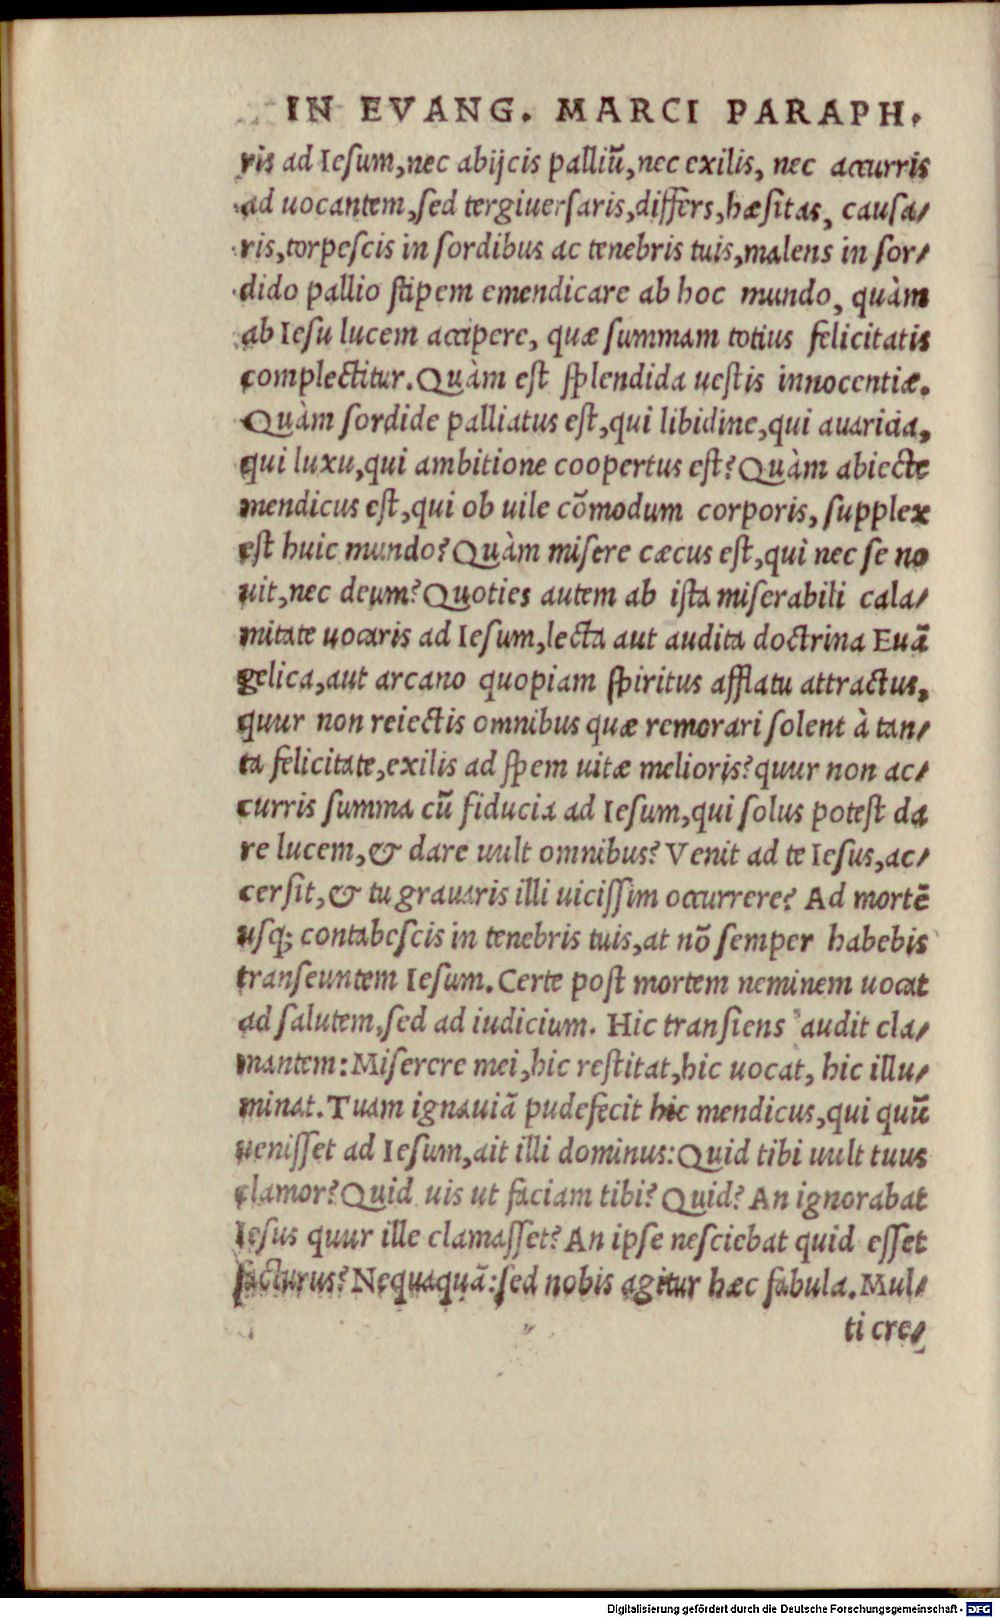 IN EVANG. MARCI PARAPH.
ris ad Iesum, nec abijcis palliū, nec exilis, nec accurris
ad uocantem, sed tergiuersaris, differs, hæsitas, causa/
ris, torpescis in sordibus ac tenebris tuis, malens in sor/
dido pallio stipem emendicare ab hoc mundo, quàm
ab Iesu lucem accipere, quæ summam totius felicitatis
complectitur. Quàm est splendida uestis innocentiæ.
Quàm sordide palliatus est, qui libidine, qui auaricia,
qui luxu, qui ambitione coopertus est? Quàm abiecte
mendicus est, qui ob uile cōmodum corporis, supplex
est huic mundo? Quàm misere cæcus est, qui nec se no
uit, nec deum? Quoties autem ab ista miserabili cala/
mitate uocaris ad Iesum, lecta aut audita doctrina Euā
gelica, aut arcano quopiam spiritus afflatu attractus,
quur non reiectis omnibus quæ remorari solent à tan/
ta felicitate, exilis ad spem uitæ melioris? quur non ac/
curris summa cū fiducia ad Iesum, qui solus potest da
re lucem, & dare uult omnibus? Venit ad te Iesus, ac/
cersit, & tu grauaris illi uicissim occurrere? Ad mortē
usq; contabescis in tenebris tuis, at nō semper habebis
transeuntem Iesum. Certe post mortem neminem uocat
ad salutem, sed ad iudicium. Hic transiens audit cla/
mantem: Miserere mei, hic restitat, hic uocat, hic illu/
minat. Tuam ignauiā pudefecit hic mendicus, qui quū
uenisset ad Iesum, ait illi dominus: Quid tibi uult tuus
clamor? Quid uis ut faciam tibi? Quid? An ignorabat
Iesus quur ille clamasset? An ipse nesciebat quid esset
facturus? Nequaquā: sed nobis agitur hæc fabula. Mul/
ti cre/
Digitalisierung gefördert durch die Deutsche Forschungsgemeinschaft - DFG